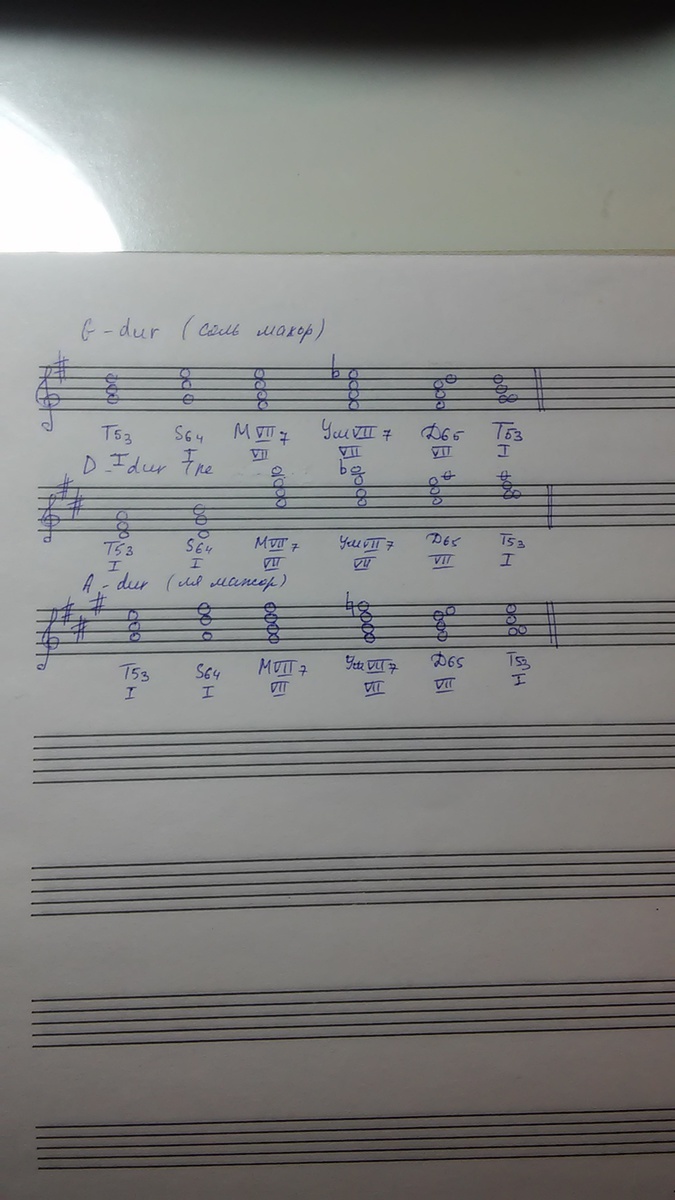 G-dur (соль мажор)
T53 S64 MVII7 УмVII7 D65 T53
I I VII VII VII I
D-dur ре
T53 S64 MVII7 УмVII7 D65 T53
I I VII VII VII I
A-dur (ля мажор)
T53 S64 MVII7 УмVII7 D65 T53
I I VII VII VII I